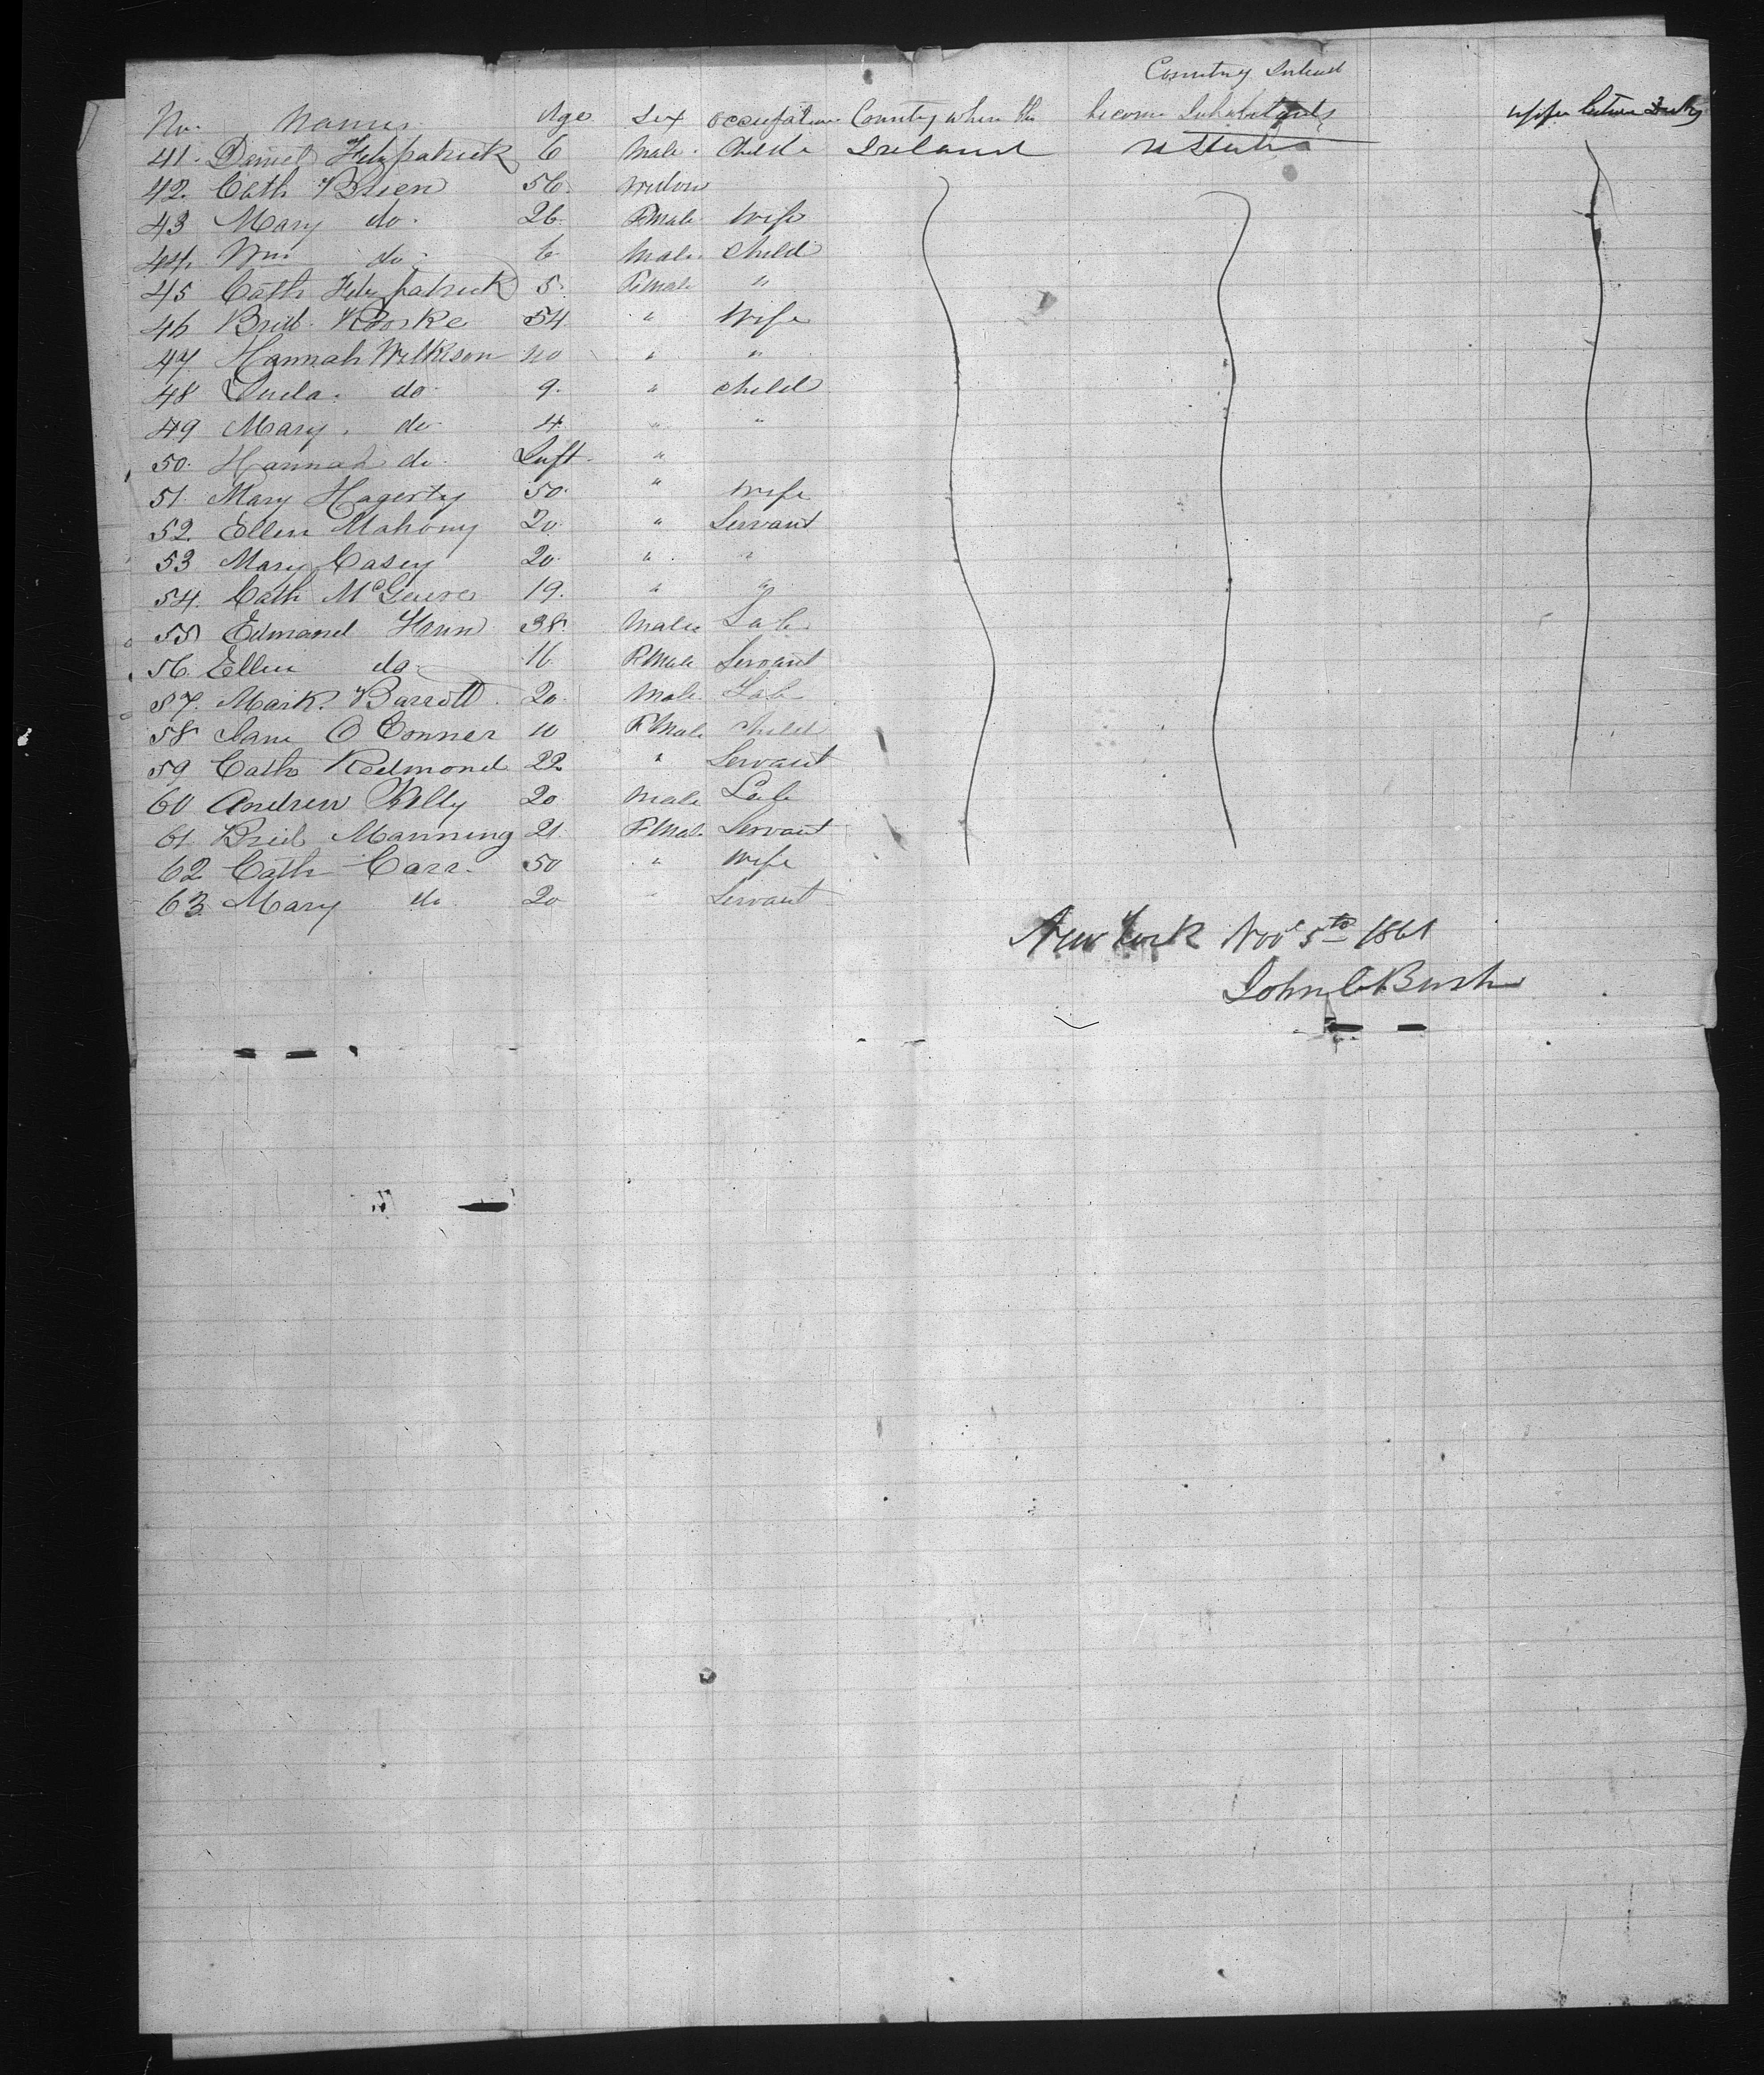 Country Intend
No. Names. Age Sex Occupation Country where they become Inhabitants upper between Decks
41. Daniel Fitzpatrick 6 Male. Child Ireland U States
42. Cath Brien 56. Widow
43 Mary do. 26. Female Wife
44. Wm do. 6 Male. Child
45 Cath Fitzpatrick 5. Female "
46 Brid. Roorke 54 " Wife
47. Hannah Wilkison 40 " "
48 do. 9. " child
49 Mary. do. 4. " "
50. Hannah do. Inft. "
51. Mary Hagerty 50. " Wife
52. Ellen Mahony 20. " Servant
53 Mary Casey 20. " "
54. Cath 19. " "
55 Edmand 38. Male Lab
56. Ellen do. 16. Female Servant
57. Mark. Barrott 20. Male. Lab
58 Jane O Conner 10 Female child
59 Cath Redmond 22. " Servant
60 Andrew Kelly 20 Male Lab
61 Brid Manning 21. Female Servant
62 Cath Carr. 50 " Wife
63. Mary do. 20 " Servant
New York Novr 5th 1861
John C Bush